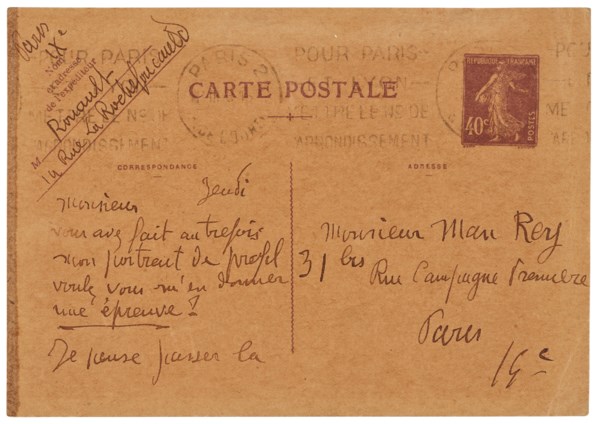 Paris
IXe
Nom
et adresse
de l'expéditeur
M Rouault
14 Rue La Rochefoucauld
POUR PARIS-
ET LYON
METTRE LE N° DE
ARRONDISSEMENT
PARIS
CARTE POSTALE
REPUBLIQUE FRANÇAISE
40c
POSTES
CORRESPONDANCE
ADRESSE
Jeudi
Monsieur
vous avez fait autrefois
mon portrait de profil
voulez vous m'en donner
une épreuve ?
Je pense passer la
Monsieur Man Rey
31 bis
Rue Campagne Première
Paris
14e